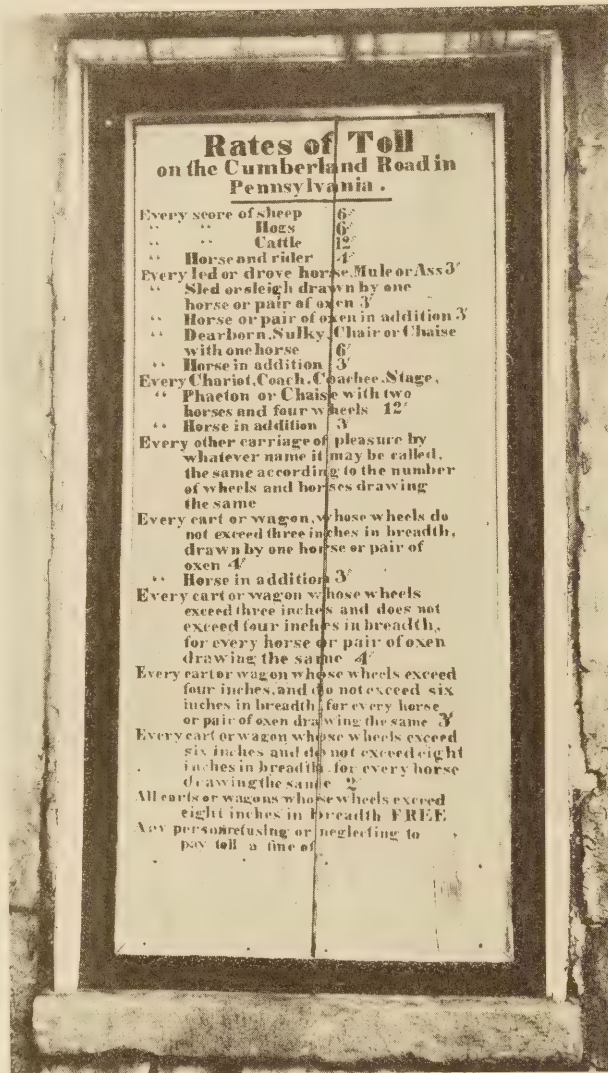 Rates of Toll
on the Cumberland Road in
Pennsylvania.
Every score of sheep 6′
“ “ Hogs 6′
“ “ Cattle 12′
“ Horse and rider 4′
Every led or drove horse, Mule or Ass 3′
“ Sled or sleigh drawn by one
horse or pair of oxen 3′
“ Horse or pair of oxen in addition 3′
“ Dearborn, Sulky, Chair or Chaise
with one horse 6′
“ Horse in addition 3′
Every Chariot, Coach, Coachee, Stage,
“ Phaeton or Chaise with two
horses and four wheels 12′
“ Horse in addition 3′
Every other carriage of pleasure by
whatever name it may be called,
the same according to the number
of wheels and horses drawing
the same
Every cart or wagon, whose wheels do
not exceed three inches in breadth,
drawn by one horse or pair of
oxen 4′
“ Horse in addition 3′
Every cart or wagon whose wheels
exceed three inches and does not
exceed four inches in breadth,
for every horse or pair of oxen
drawing the same 4′
Every cart or wagon whose wheels exceed
four inches, and do not exceed six
inches in breadth, for every horse
or pair of oxen drawing the same 3′
Every cart or wagon whose wheels exceed
six inches and do not exceed eight
inches in breadth, for every horse
drawing the same 2′
All carts or wagons whose wheels exceed
eight inches in breadth FREE
Any person refusing or neglecting to
pay toll a fine of